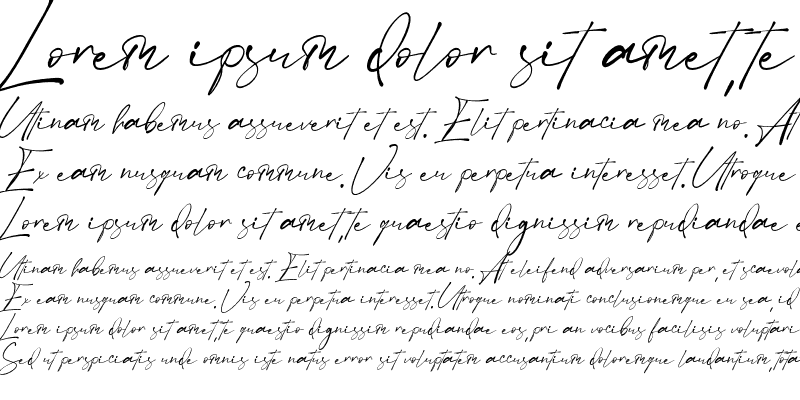 Lorem ipsum dolor sit amet, te
Utinam habemus assueverit et est. Elit pertinacia mea no. At
Ex eam nusquam commune. Vis eu perpetua interesset. Utroque
Lorem ipsum dolor sit amet, te quaestio dignissim repudiandae e
Utinam habemus assueverit et est. Elit pertinacia mea no. At eleifend adversarium per, et scaevola
Ex eam nusquam commune. Vis eu perpetua interesset. Utroque nominati conclusionemque eu sea, id
Lorem ipsum dolor sit amet, te quaestio dignissim repudiandae eos, pri an vocibus facilisis voluptari
Sed ut perspiciatis unde omnis iste natus error sit voluptatem accusantium doloremque laudantium, tota